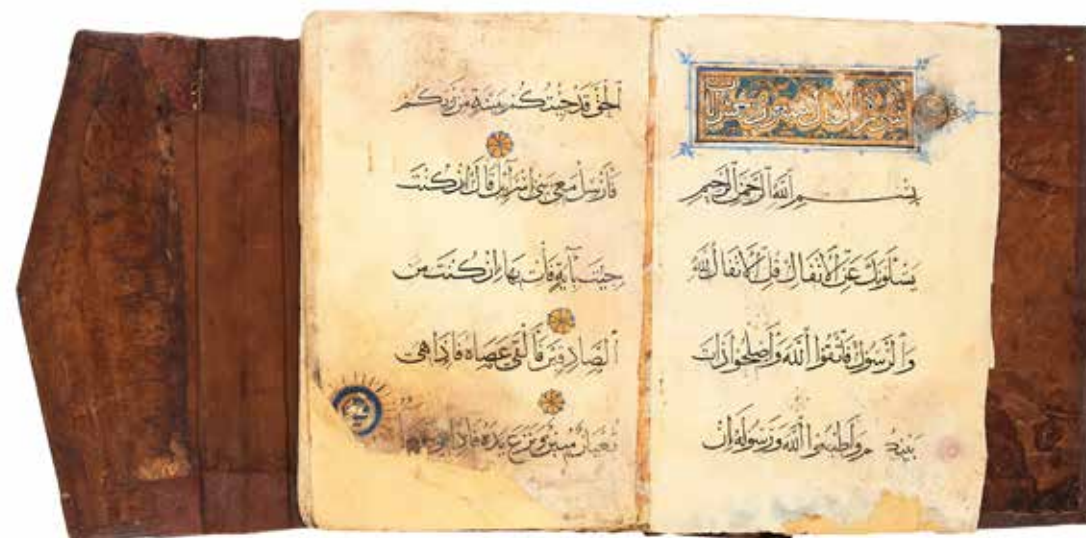 سورة الانفال
بسم الله الرحمن الرحيم
يسئلونك عن الانفال قل الانفال لله
والرسول فاتقوا الله واصلحوا ذات
بينكم واطيعوا الله ورسوله ان
الحق قد جئتكم ببينة من ربكم
فارسل معي بني اسرآئل قال ان كنت
جئت بآية فأت بها ان كنت من
الصادقين فالقى عصاه فاذا هي
ثعبان مبين ونزع يده فاذا